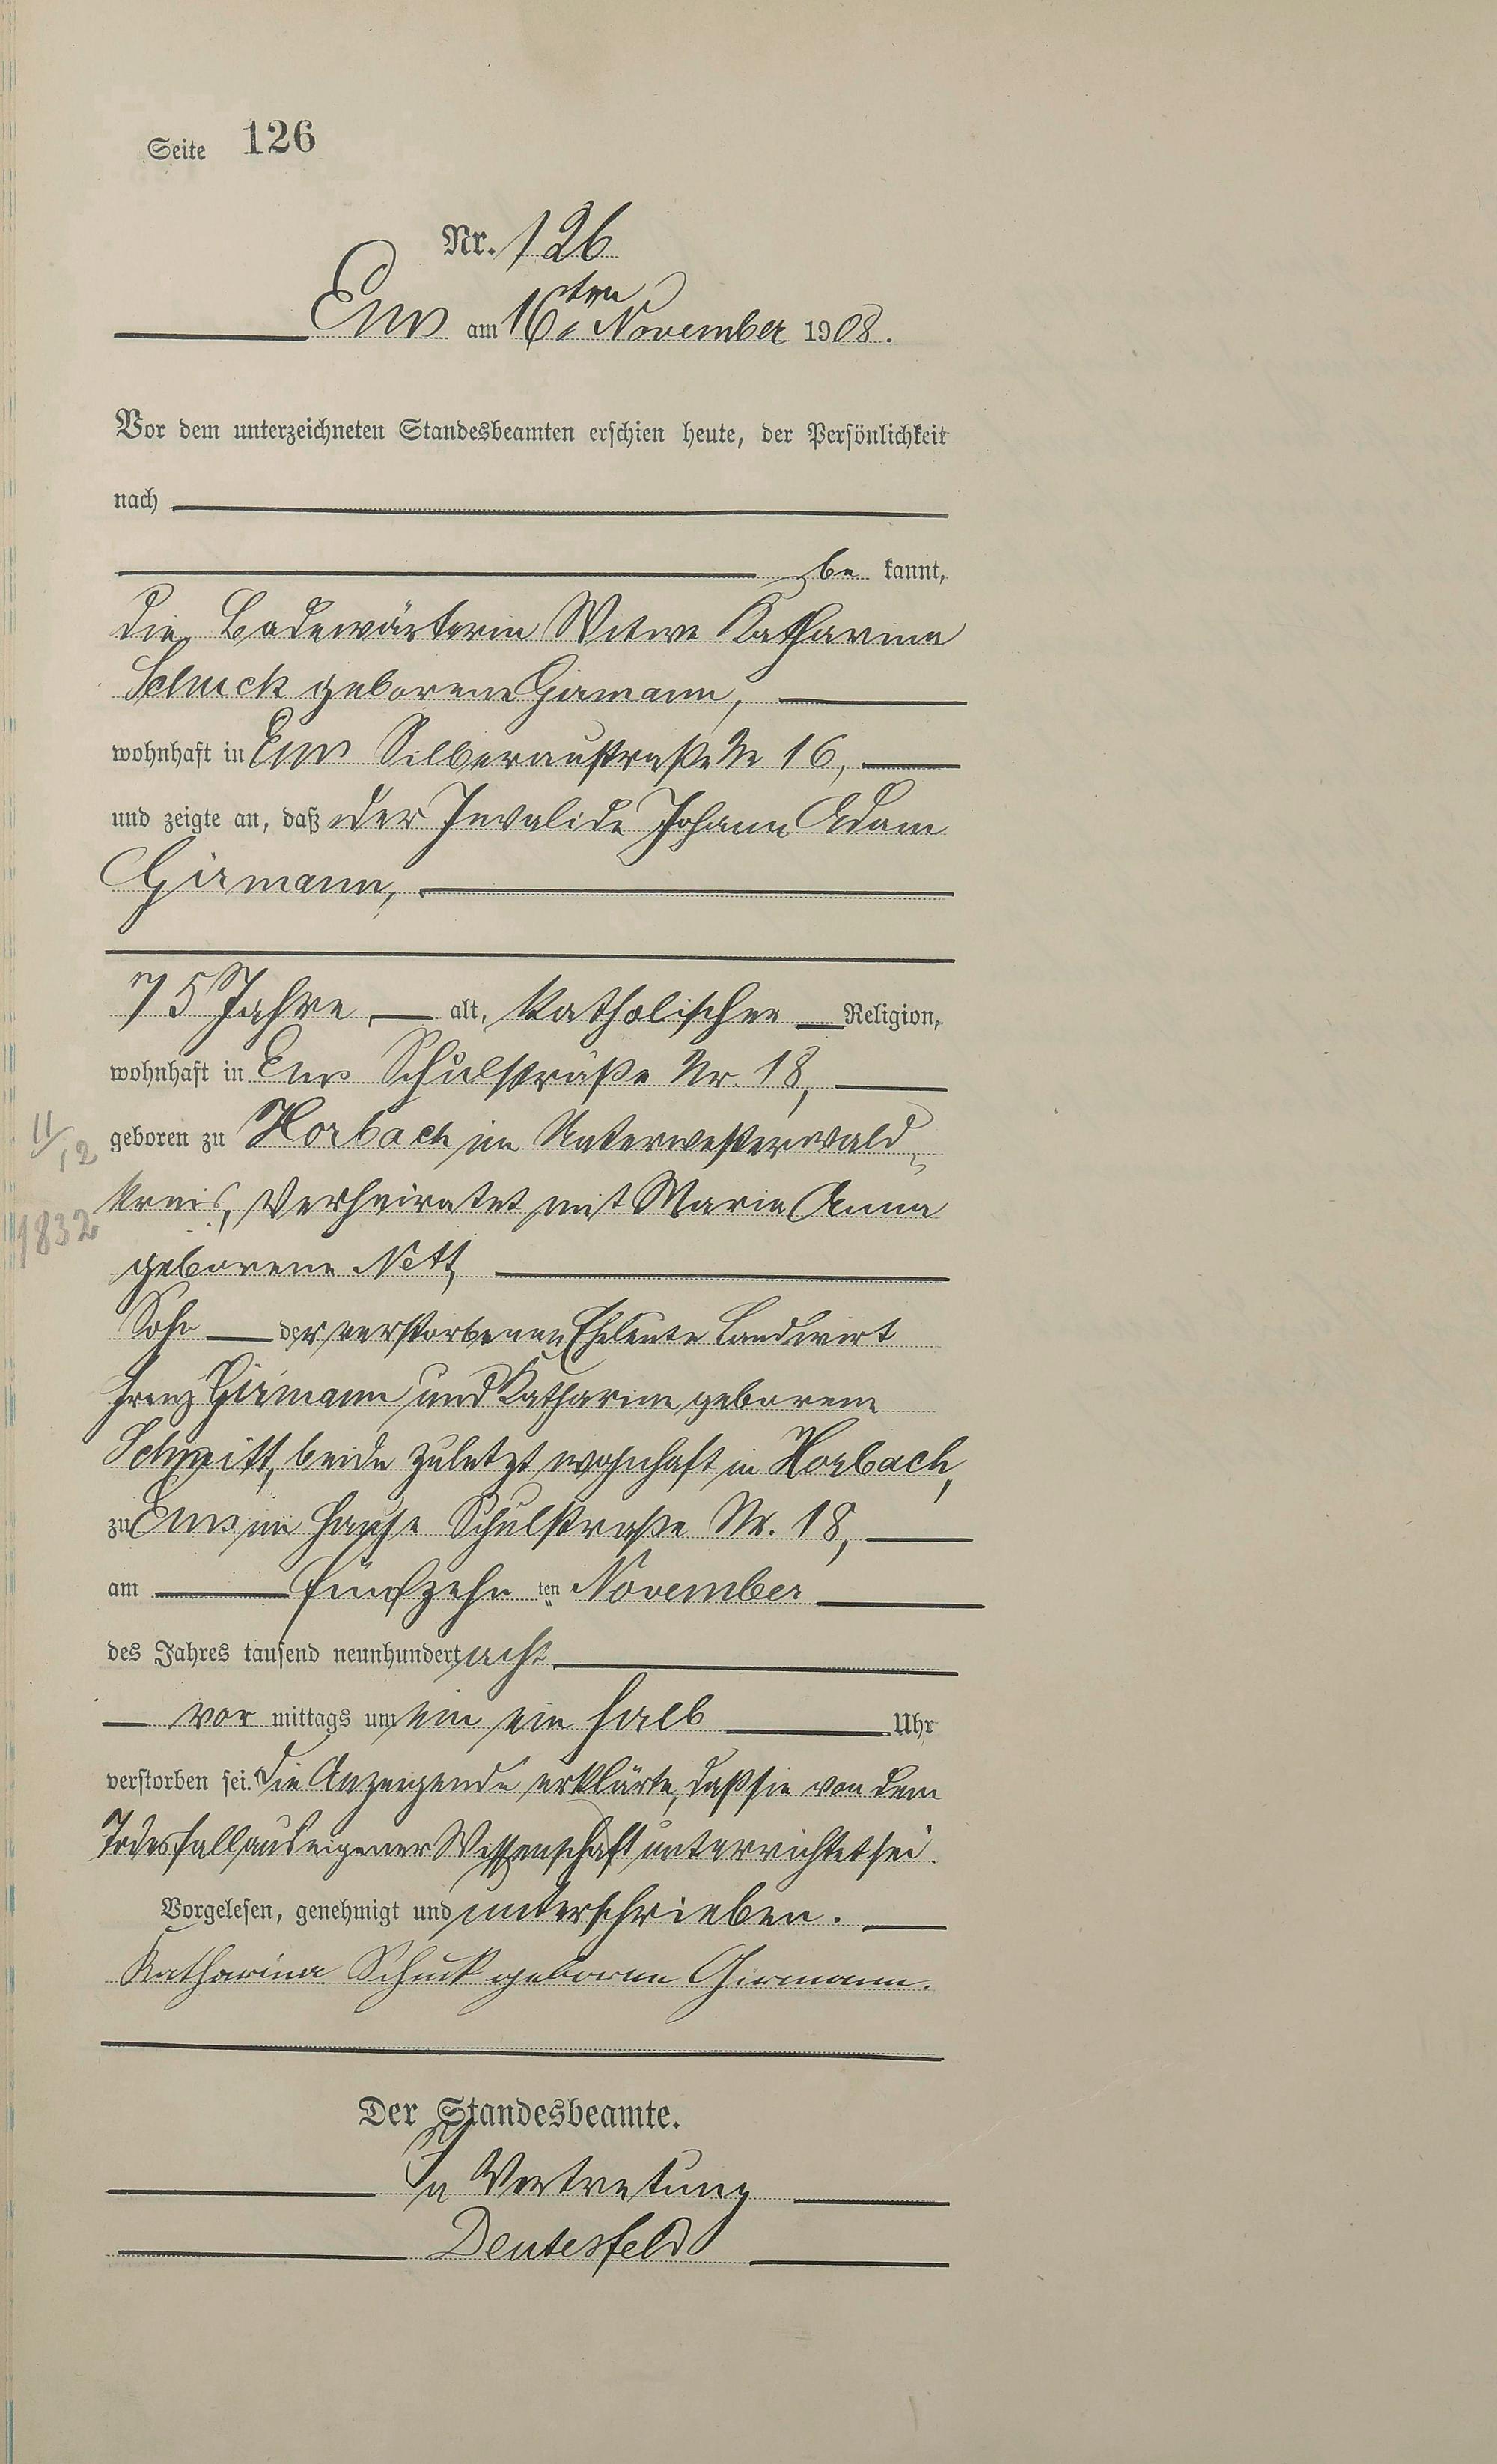 Seite 126
Nr. 126
Ems am 16ten November 1908.
Vor dem unterzeichneten Standesbeamten erschien heute, der Persönlichkeit
nach
be kannt,
die Badewärterin Witwe Katharina
Schuck geborene Girmann,
wohnhaft in Ems Silberaustraße Nr 16,
und zeigte an, daß der Invalide Johann Adam
Girmann,
75 Jahre alt, katholischer Religion,
wohnhaft in Ems Schulstraße Nr. 18,
11/12
geboren zu Horbach im Unterwesterwald-
kreis, verheiratet mit Maria Anna
1832
geborene Nett,
Sohn der verstorbenen Eheleute Landwirt
Franz Girmann und Katharina geborene
Schmitt, beide zuletzt wohnhaft in Horbach,
zu Ems im Hause Schulstraße Nr. 18,
am fünfzehn ten November
des Jahres tausend neunhundert acht
vor mittags um ein ein halb Uhr
verstorben sei. Die Anzeigende erklärte, daß sie von dem
Todesfall aus eigener Wissenschaft unterrichtet sei.
Vorgelesen, genehmigt und unterschrieben.
Katharina Schuck geborne Girmann.
Der Standesbeamte.
In Vertretung
Deutesfeld